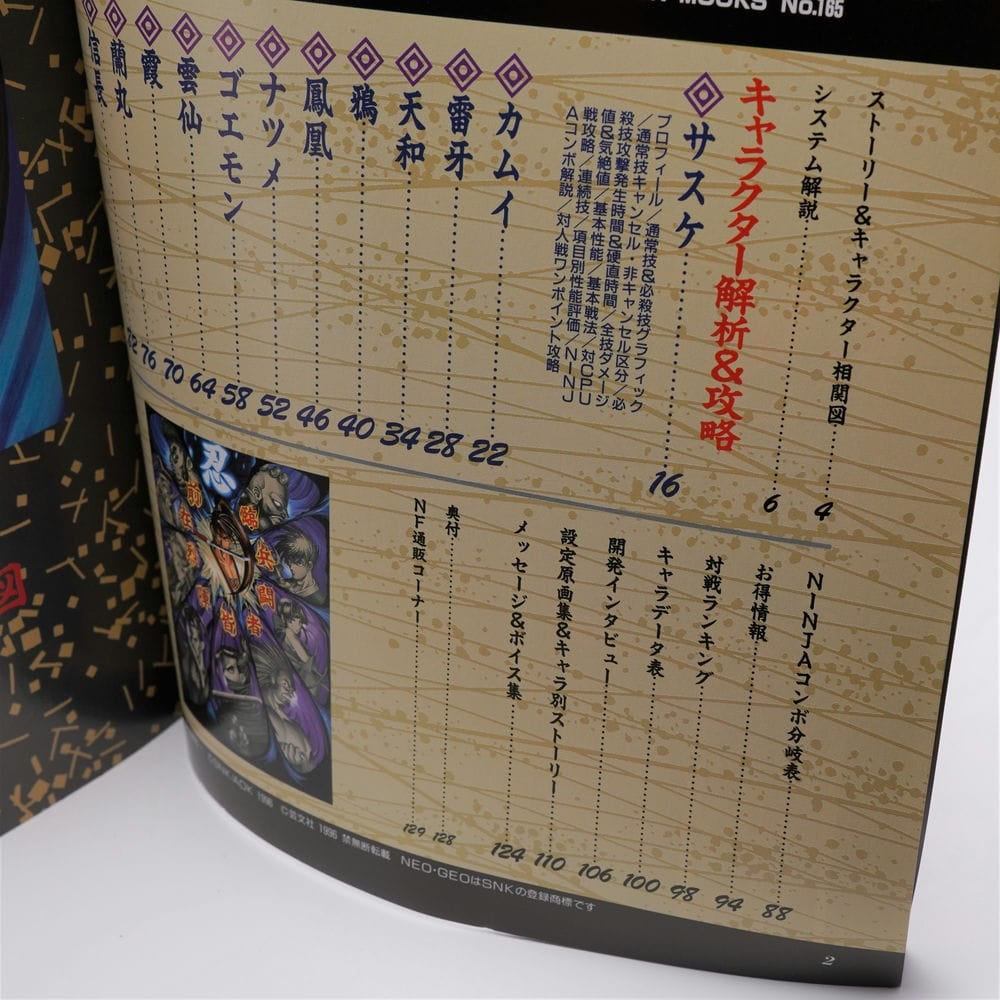 MOOKS No.165
ストーリー&キャラクター相関図 4
システム解説 6
キャラクター解析&攻略
サスケ 16
プロフィール/通常技&必殺技グラフィック
/通常技キャンセル・非キャンセル区分/必
殺技攻撃発生時間&硬直時間/全技ダメージ
値&気絶値/基本性能/基本戦法/対CPU
戦攻略/連続技/項目別性能評価/NINJ
Aコンボ解説/対人戦ワンポイント攻略
カムイ 22
雷牙 28
天和 34
鴉 40
鳳凰 46
ナツメ 52
ゴエモン 58
雲仙 64
霞 70
蘭丸 76
信長
NINJAコンボ分岐表 88
お得情報 94
対戦ランキング 98
キャラデータ表 100
開発インタビュー 106
設定原画集&キャラ別ストーリー 110
メッセージ&ボイス集 124
奥付 128
NF通販コーナー 129
忍
臨
兵
闘
者
皆
前
©SNK/ADK 1996 ©芸文社 1996 禁無断転載 NEO・GEOはSNKの登録商標です
2
図